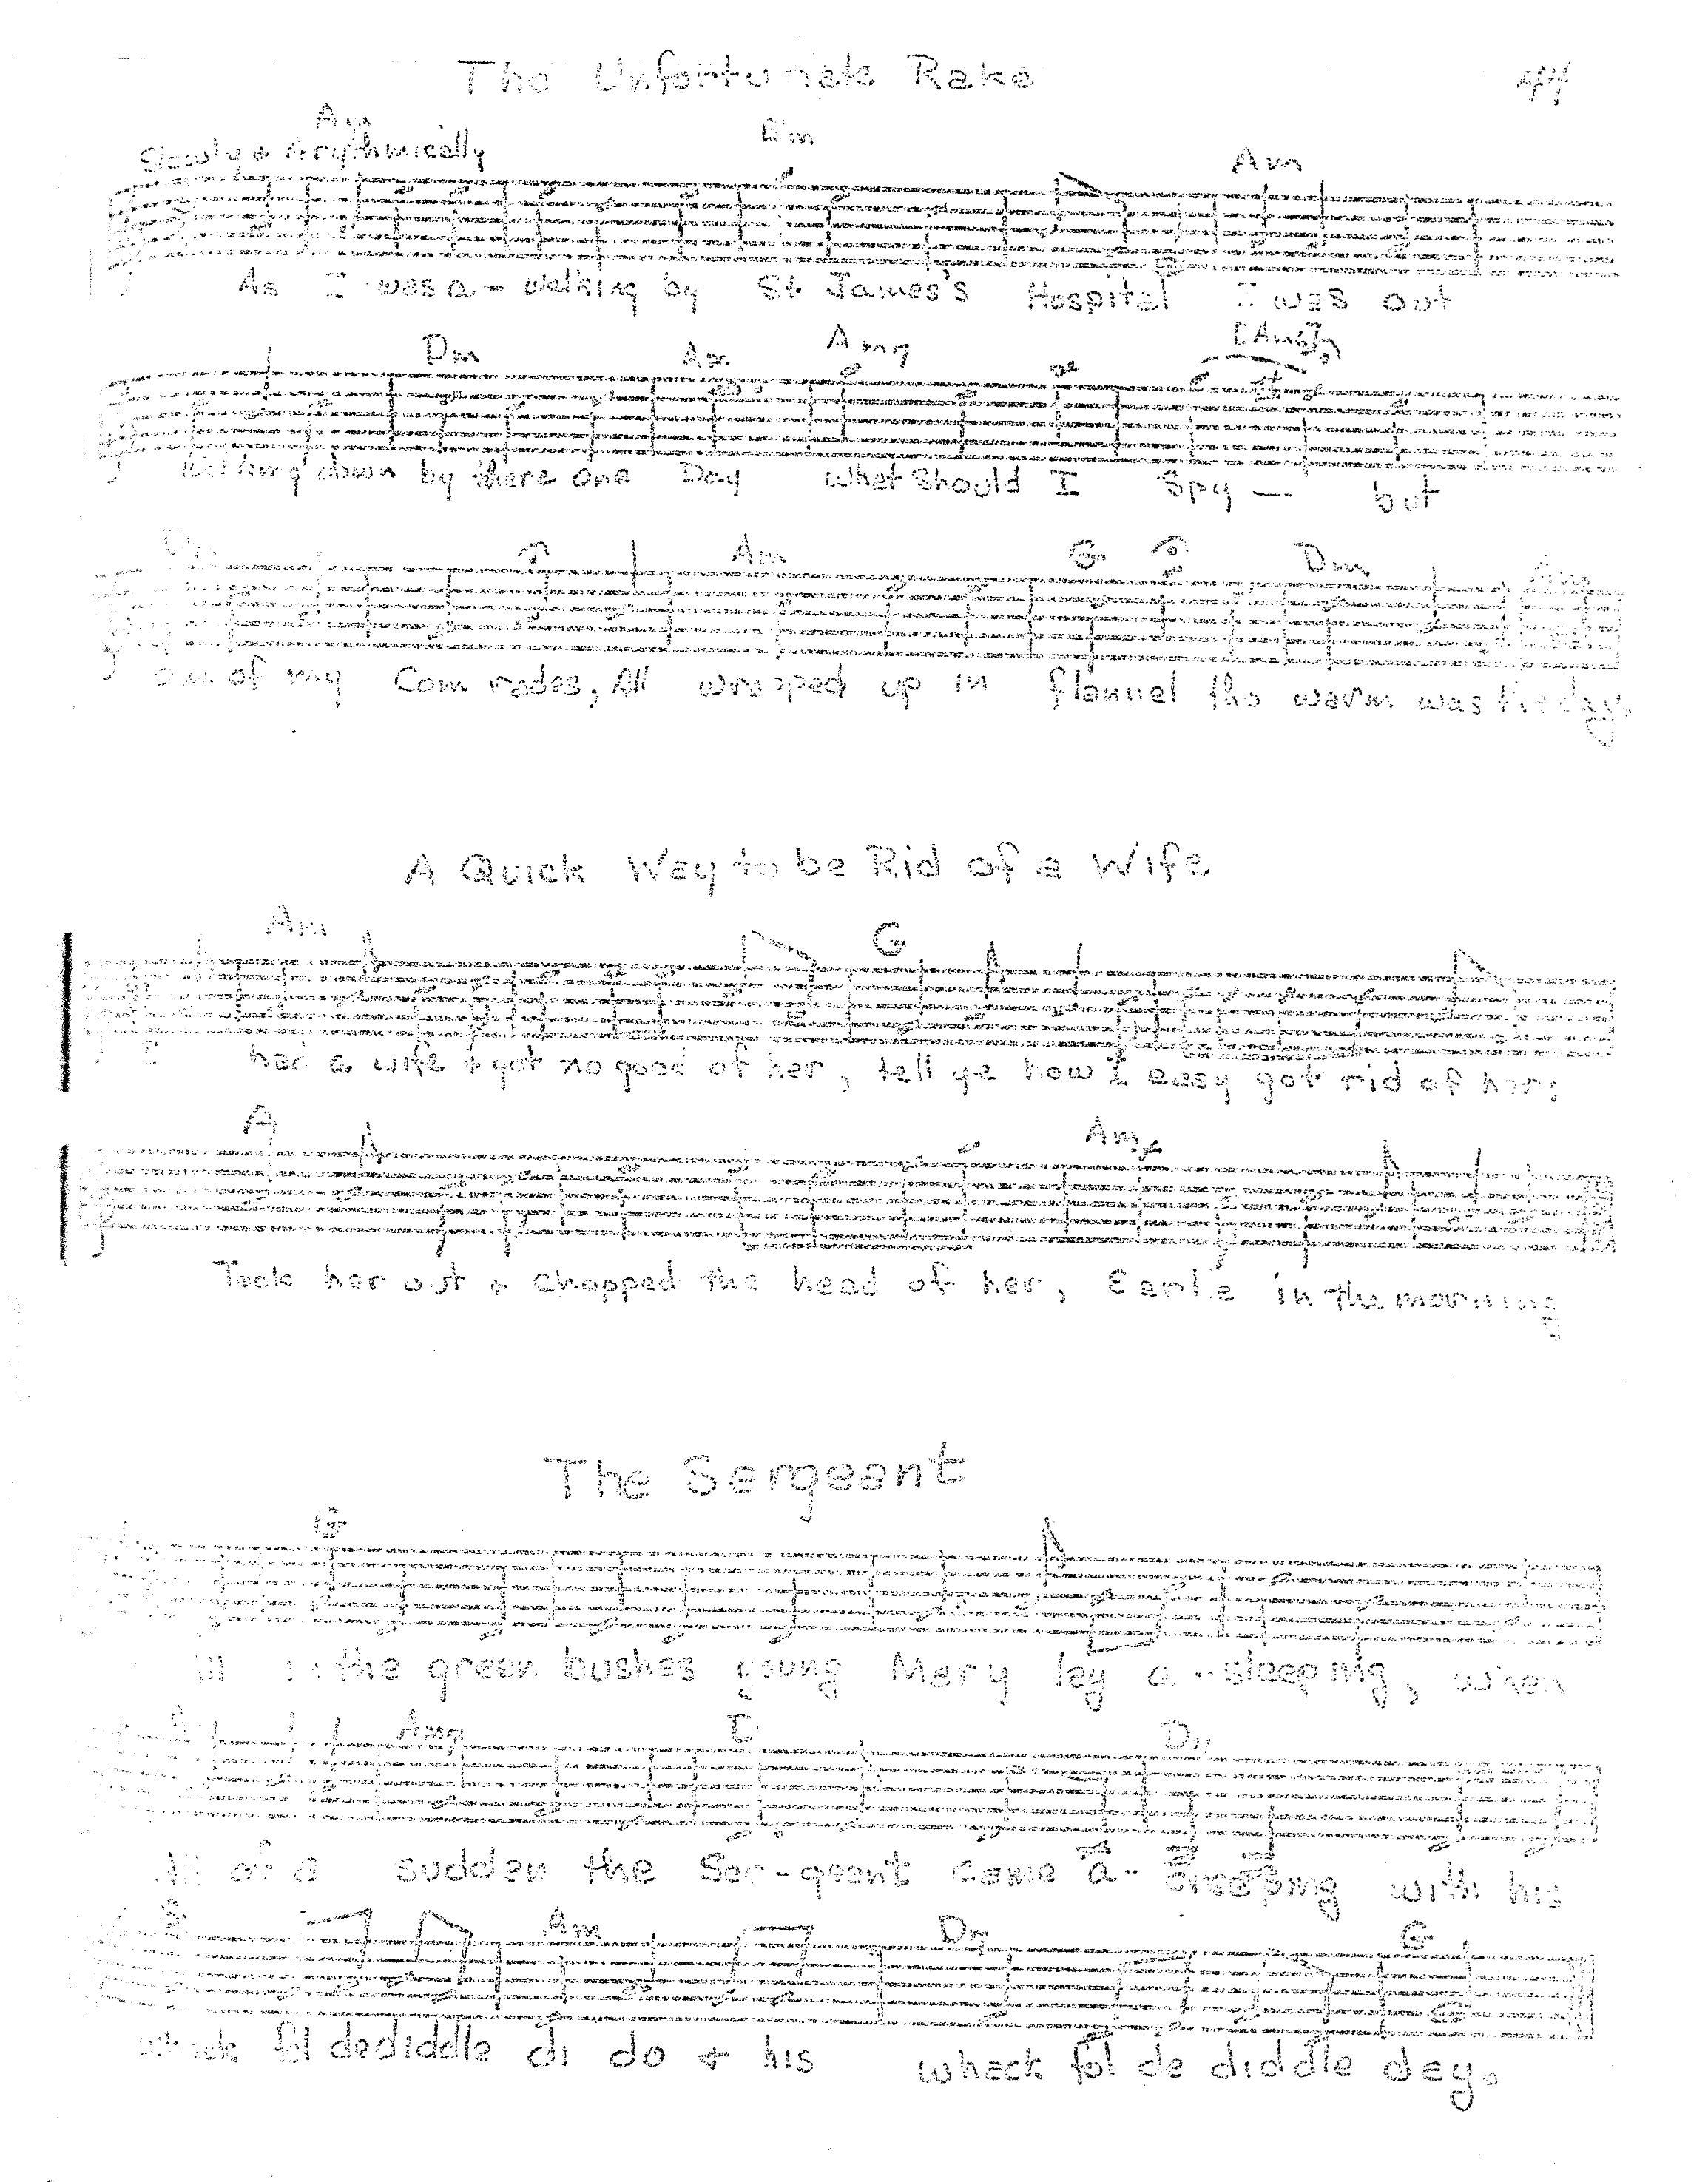 The Unfortunate Rake
Am Em
Slowly & Arythmically Am
As I was a - walking by St James's Hospital I was out
Dm Am Am7
walking down by there one Day what should I Spy — but
Am G Dm
one of my Com rades, All wrapped up in flannel tho warm was the day
A Quick Way to be Rid of a Wife
Am G
I had a wife & got no good of her, tell ye how I easy got rid of her;
Am
Took her out & chopped the head of her, Earlie in the morning
The Sergeant
in the green bushes young Mary lay a - sleeping, when
Am7 C Dm
All of a sudden the Ser - geant came a - creeping with his
Am Dm G
whack fol de diddle di do & his whack fol de diddle day.